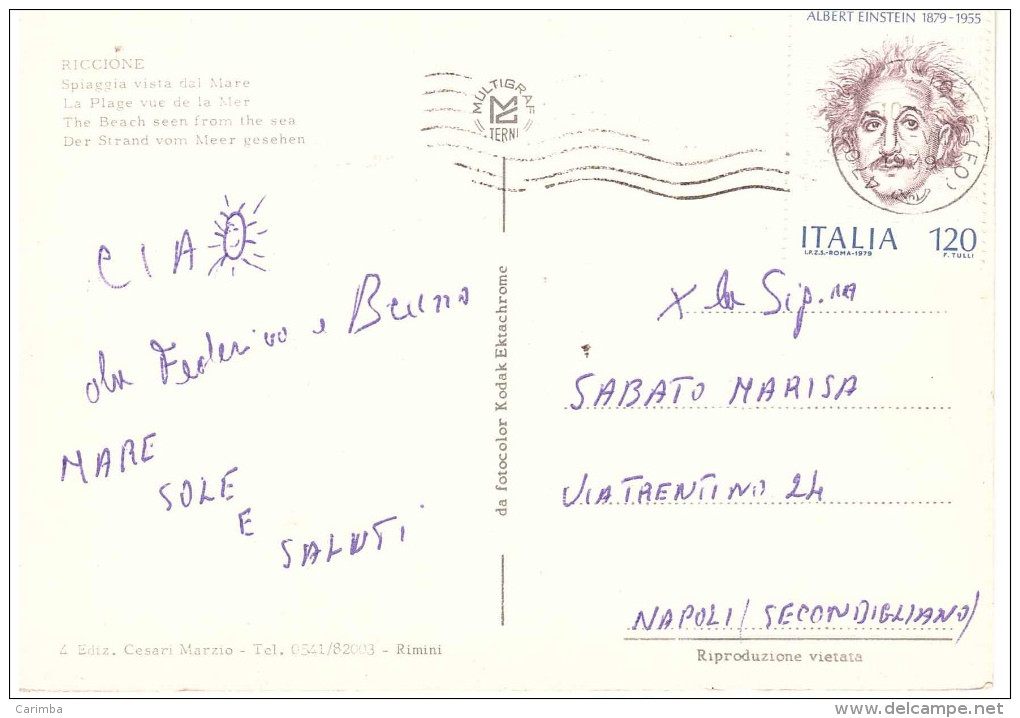 RICCIONE
Spiaggia vista dal Mare
La Plage vue de la Mer
The Beach seen from the sea
Der Strand vom Meer gesehen
CIAO
da Federico e Bruno
MARE
SOLE
E
SALUTI
4 Ediz. Cesari Marzio - Tel. 0541/82003 - Rimini
da fotocolor Kodak Ektachrome
MULTIGRAF
TERNI
ALBERT EINSTEIN 1879-1955
1979
ITALIA 120
I.P.Z.S.-ROMA-1979 F. TULLI
X la Sig.na
SABATO MARISA
VIA TRENTINO 24
NAPOLI (SECONDIGLIANO)
Riproduzione vietata
Carimba
www.delcampe.net